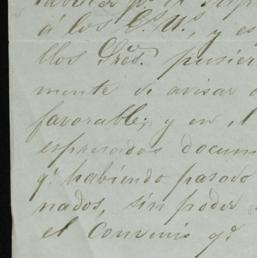 á los E.s U.s, y es
llos Gres. pusier
mente de avisar
favorable; y en
espresados docum
q.e habiendo pasado
nados, sin poder
el Convenio q.e